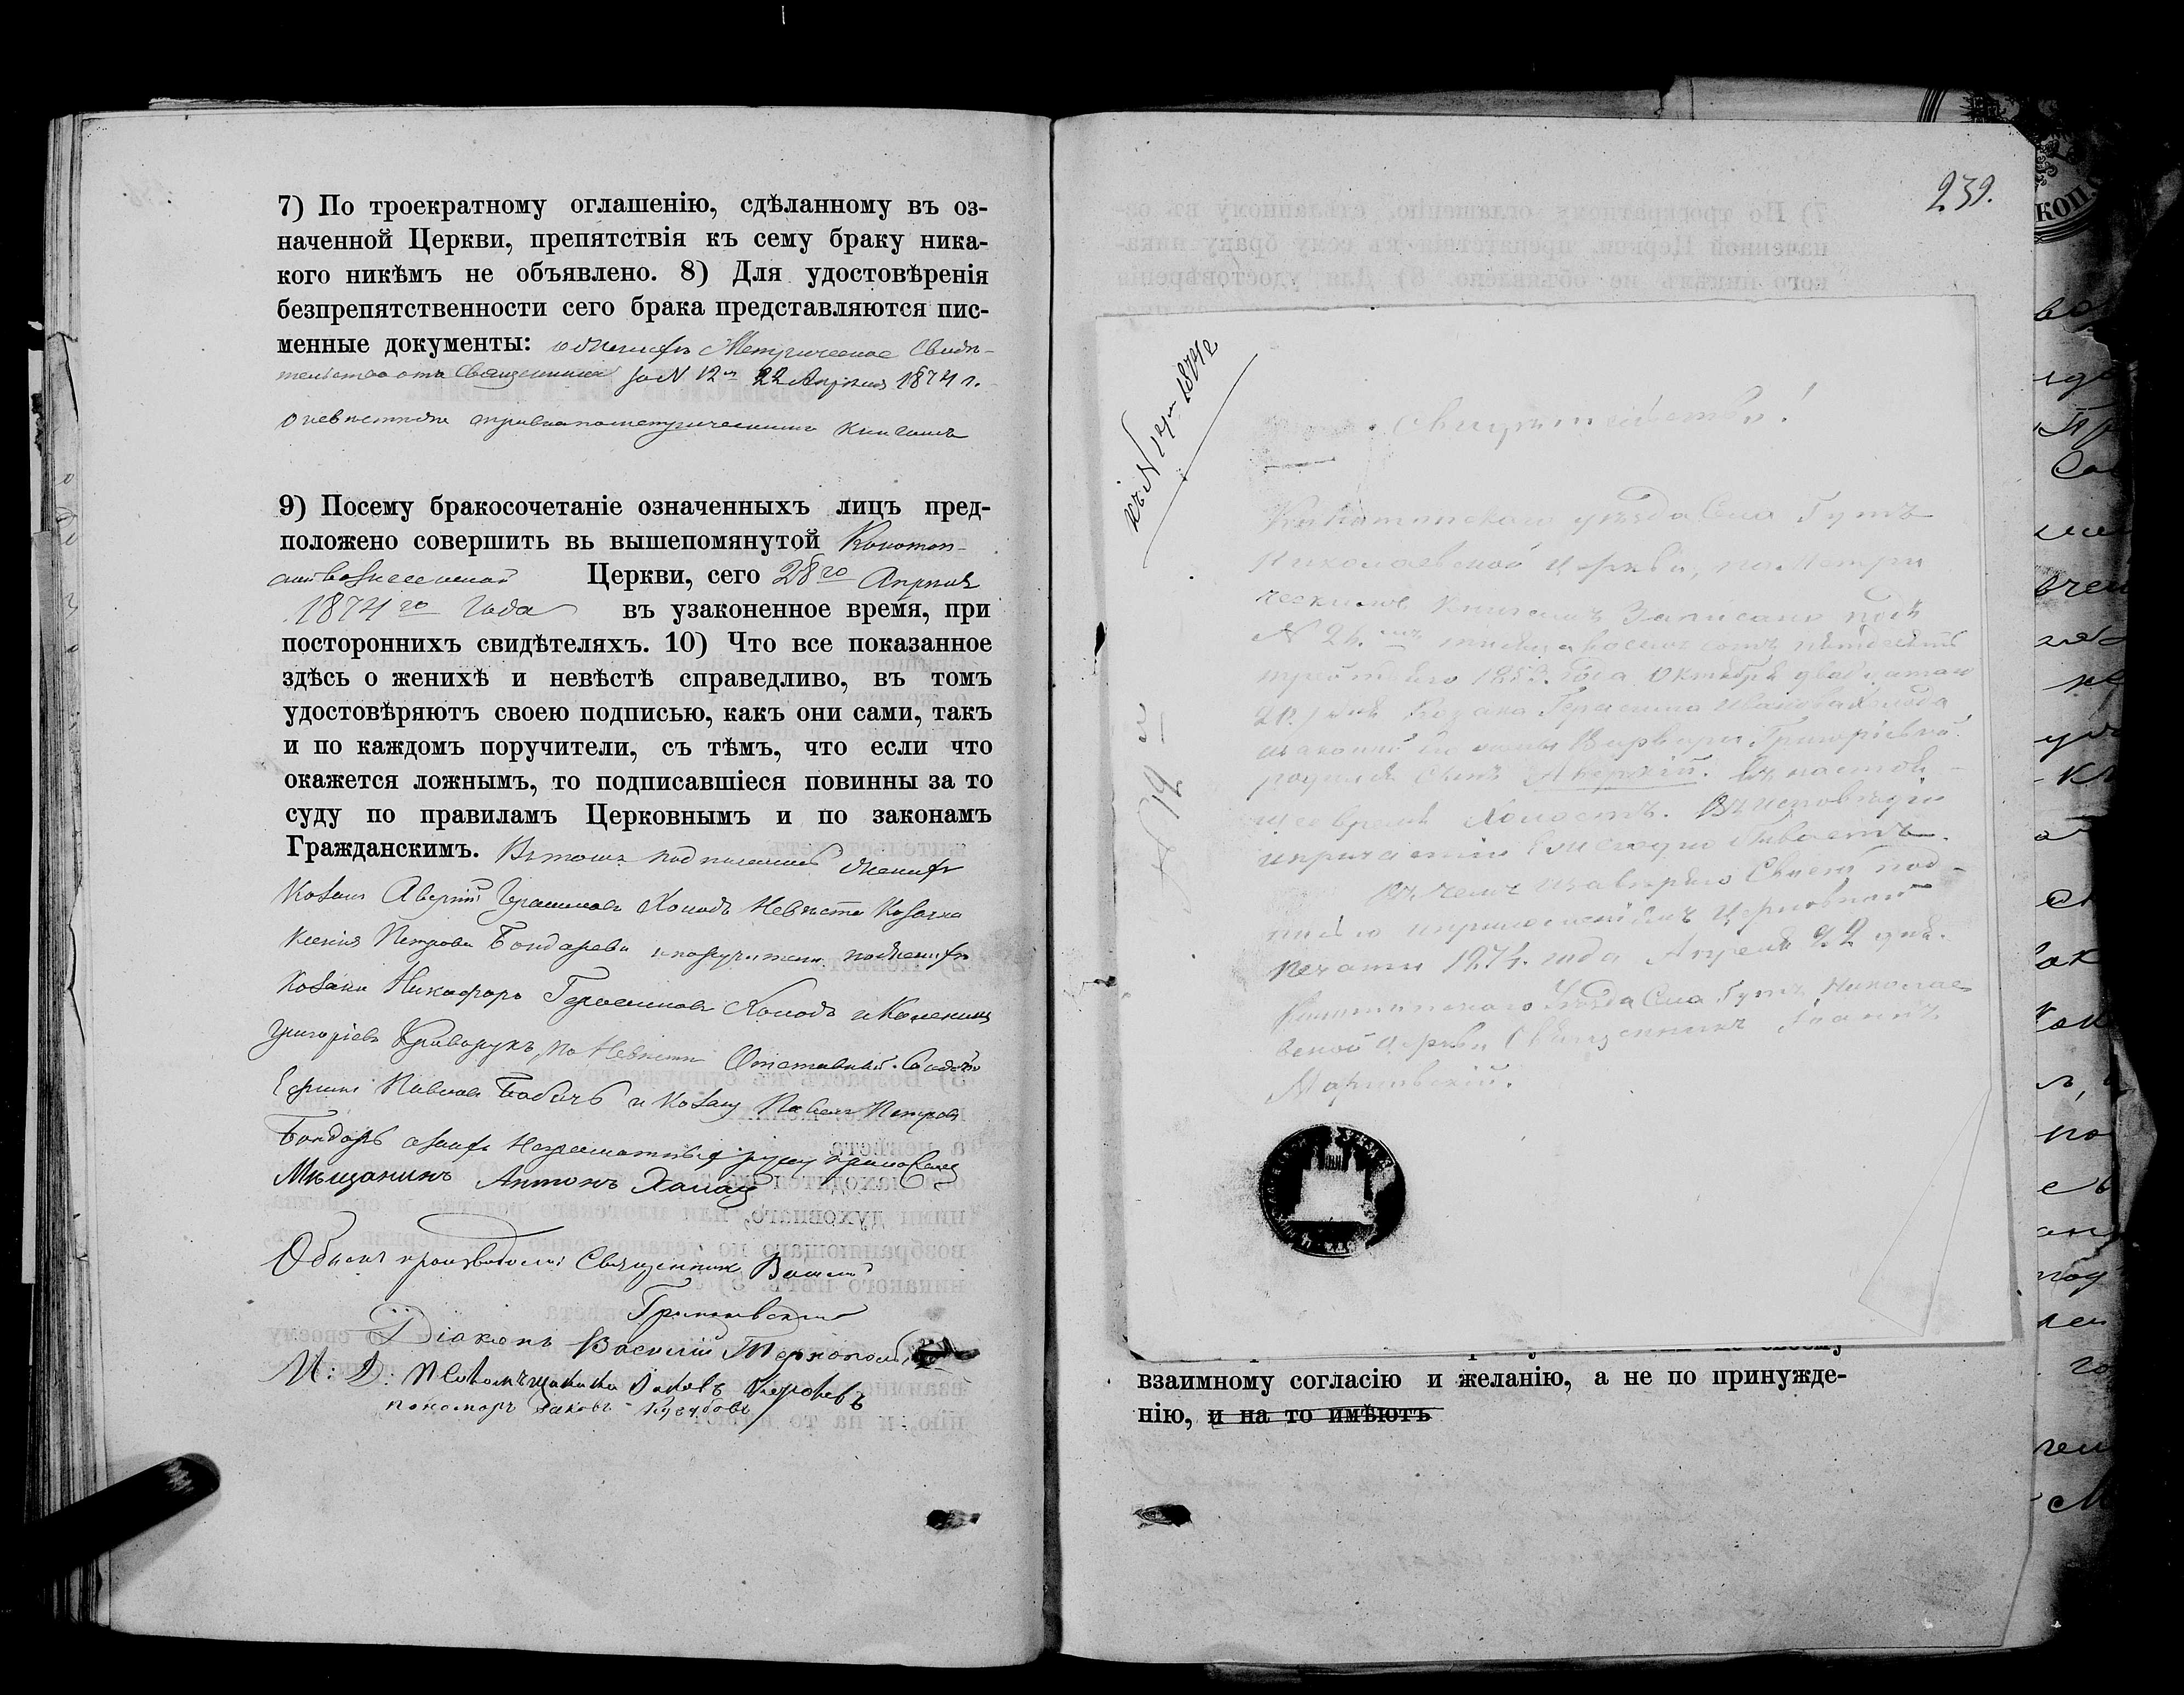 7) По троекратному оглашенію, сдѣланному въ оз-
наченной Церкви, препятствія къ сему браку ника-
кого никѣмъ не объявлено. 8) Для удостовѣренія
безпрепятственности сего брака представляются пис-
менные документы: о Женихѣ Метрическое Свидѣ-
тельство отъ Священника за N 12м 22 Апрѣля 1874 г.
о невѣстѣ справка по метрическимъ книгамъ
9) Посему бракосочетаніе означенныхъ лицъ пред-
положено совершить вь вышепомянутой Конотоп-
ской Вознесенской Церкви, сего 28го Апрѣля
1874го Года въ узаконенное время, при
постороннихъ свидѣтеляхъ. 10) Что все показанное
здѣсь о женихѣ и невѣстѣ справедливо, въ томъ
удостовѣряютъ своею подписью, какъ они сами, такъ
и по каждомъ поручители, съ тѣмъ, что если что
окажется ложнымъ, то подписавшіеся повинны за то
суду по правиламъ Церковнымъ и по законамъ
Гражданскимъ. Въ томъ подписались Женихъ
Козакъ Аверкій Герасимовъ Холодъ Невѣста Козачка
Ксенія Петрова Бондарева и поручители по Женихѣ
Козаки Никифоръ Герасимовъ Холодъ и
Григоріевъ Криворукъ, по Невѣстѣ Отставный Солдатъ
Ефимъ Павловъ Бабичъ и Козакъ Павелъ Петровъ
Бондарь а за ихъ Неграмотныхъ руку приложилъ
Мѣщанинъ Антонъ
Обыскъ производили: Священникъ Василій
Діаконъ Василій
И: Д: Псаломщика Яковъ
пономарь Яковъ
239.
къ N 12му 1874 г
N 12
Свидѣтельство!
Конотопского уѣзда Села Гутъ
Николаевской церкви, по Метри
ческимъ Книгамъ Записано подъ
N 24. тысяча восемь сотъ пятьдесятъ
третьяго 1853. Года Октября двадцатаго
20.) дня Козака Герасима Иванова Холода
и законной его жены Варвары Григоріевной
родился сынъ Аверкій. Въ настоя-
щее время Холостъ. В исповѣди
и причастіи Ежегодно бываетъ.
Въ чемъ и завѣряю Своею под-
писью и приложеніемъ Церковной
печати 1874. года Апреля 22 дня.
Конотопского Уѣзда Села Гутъ Николае
вской церкви Священникъ Іоаннъ
взаимному согласію и желанію, а не по принужде-
нію, и на то имѣютъ